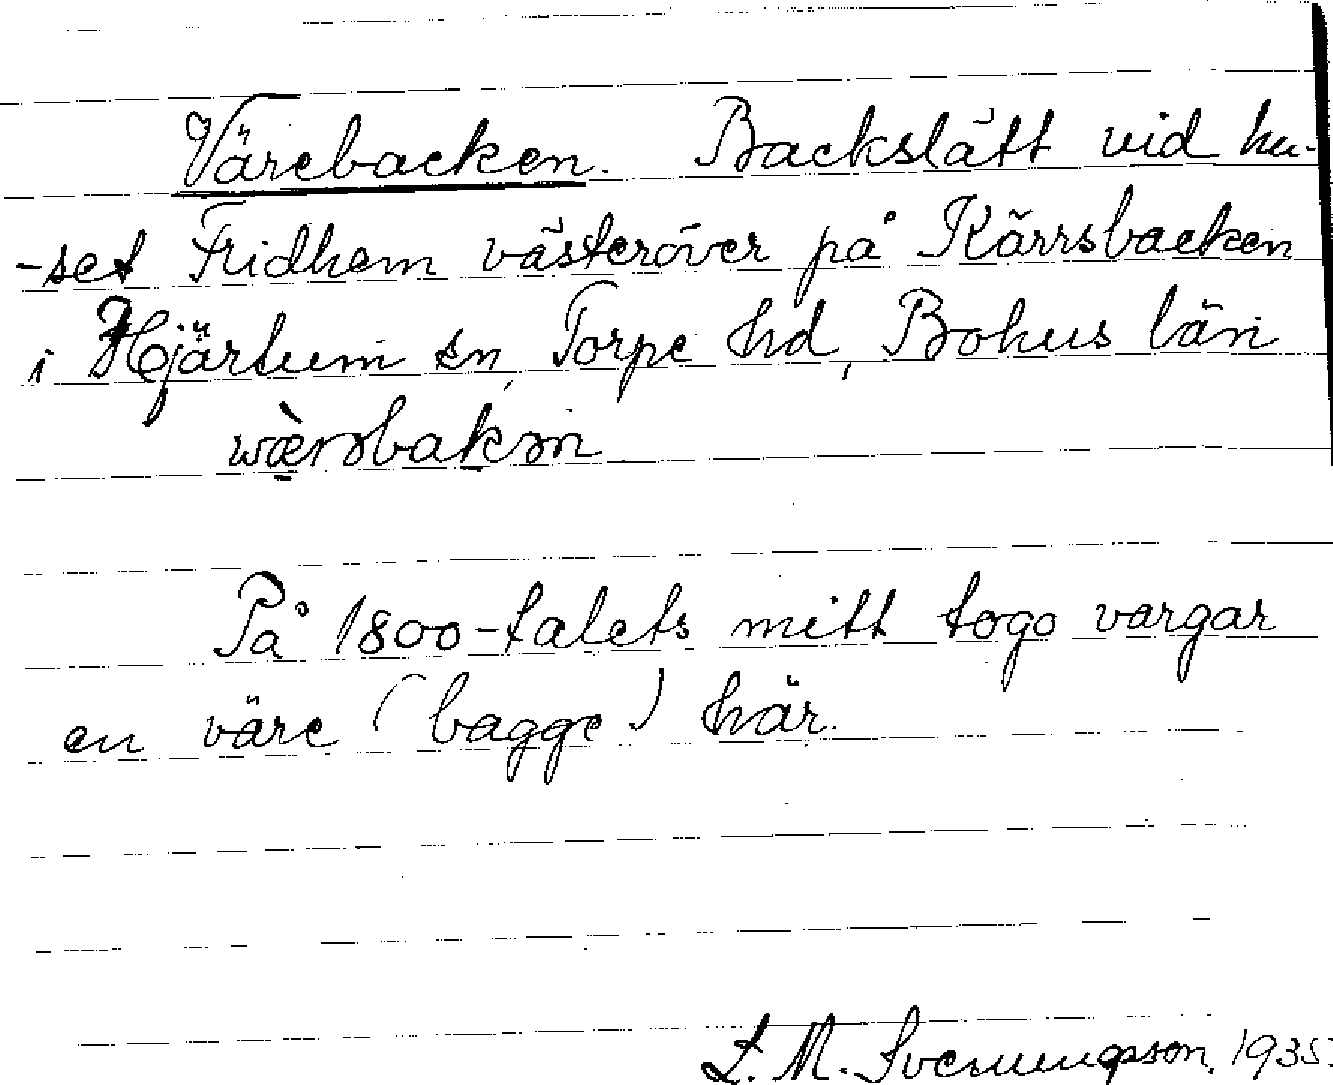 Värebacken. Backslätt vid hu-
-set Fridhem västeröver på Kärrsbacken
i Hjärtum sn, Torpe hd, Bohus län
På 1800-talets mitt togo vargar
en väre (bagge) här.
L. M. Svenungsson. 1935.